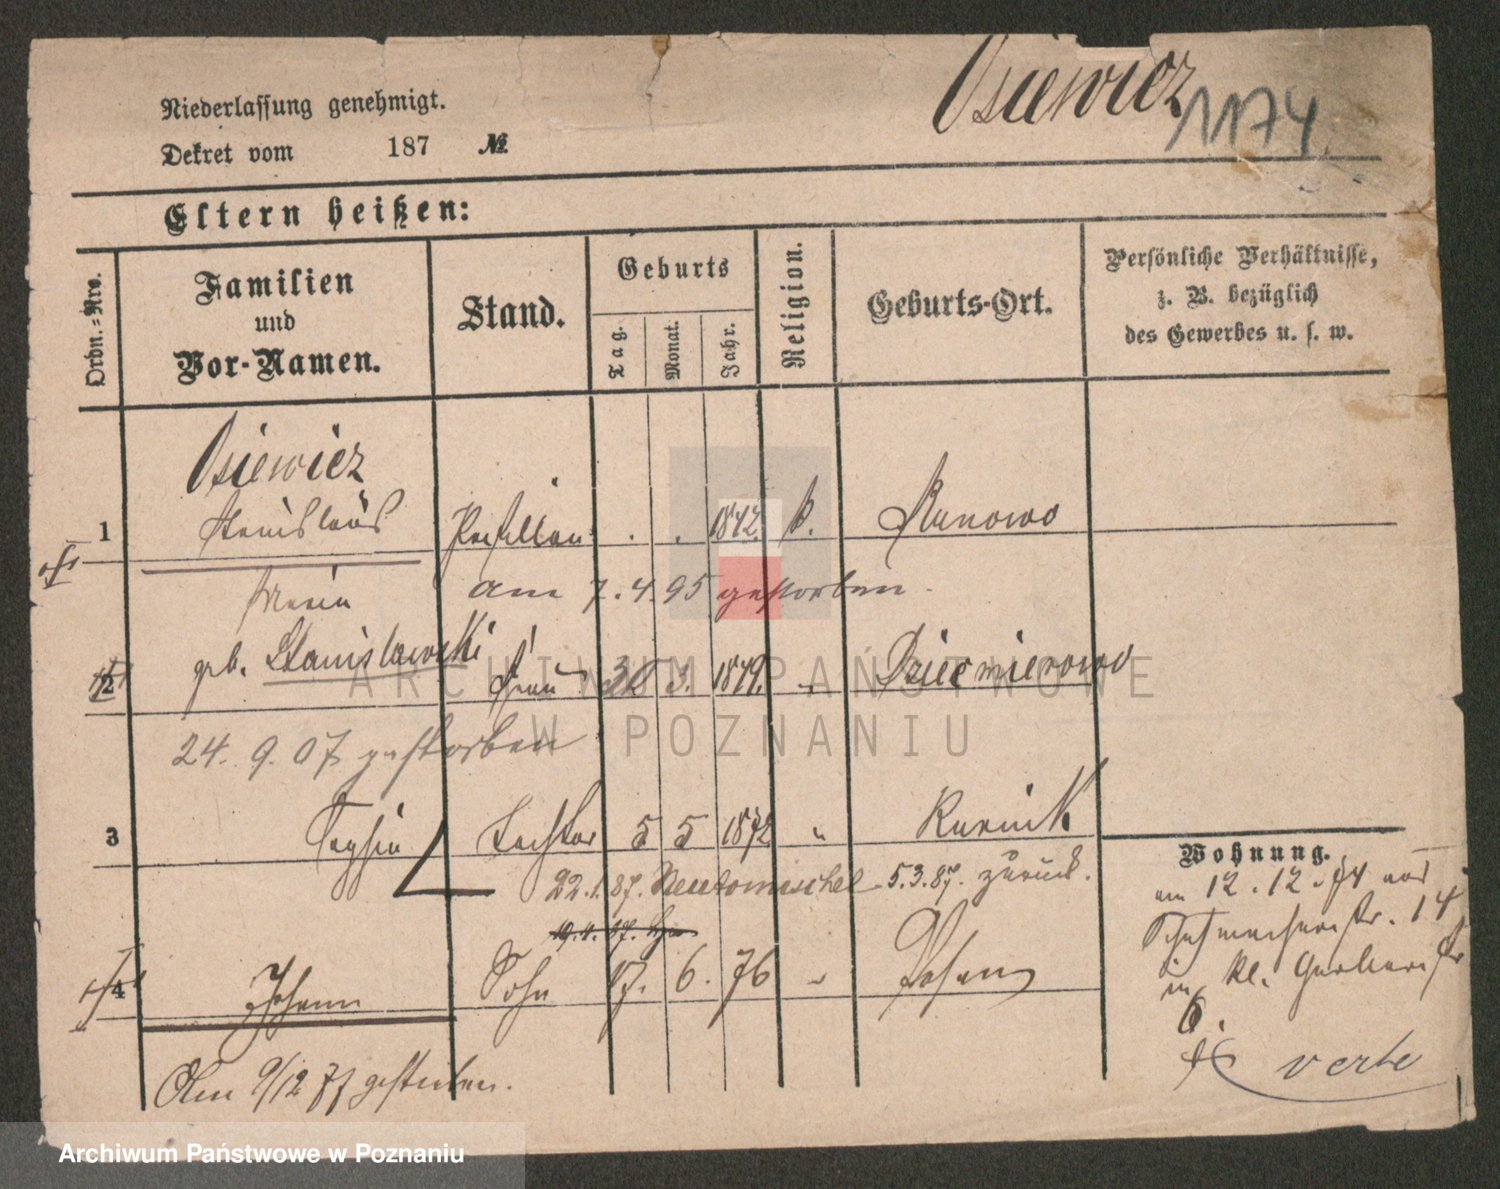 Osiewicz
1174
Niederlassung genehmigt.
Dekret vom 187 №
Eltern heißen:
Ordn.=Nro.
Familien
und
Vor-Namen.
Stand.
Geburts
Tag.
Monat.
Jahr.
Religion.
Geburts-Ort.
Persönliche Verhältnisse,
z. B. bezüglich
des Gewerbes u. s. w.
Osiewicz
1 Stanislaus . . 1842. k. Runowo
am 7.4.95 gestorben.
Maria
2 geb. Stanislawski Frau 3. 1849. Dziećmierowo
24. 9. 07 gestorben
3 Tochter 5 5 1872 " Kurnik
22.1.87. Neutomischel 5.3.87. zurück.
4 Johann Sohn 17. 6. 76 " Posen
Am 9/12 77 gestorben.
Wohnung.
am 12.12.74 aus
Schuhmacherstr. 14
in kl. Gerberstr
6.
verte
ARCHIWUM PAŃSTWOWE
W POZNANIU
Archiwum Państwowe w Poznaniu